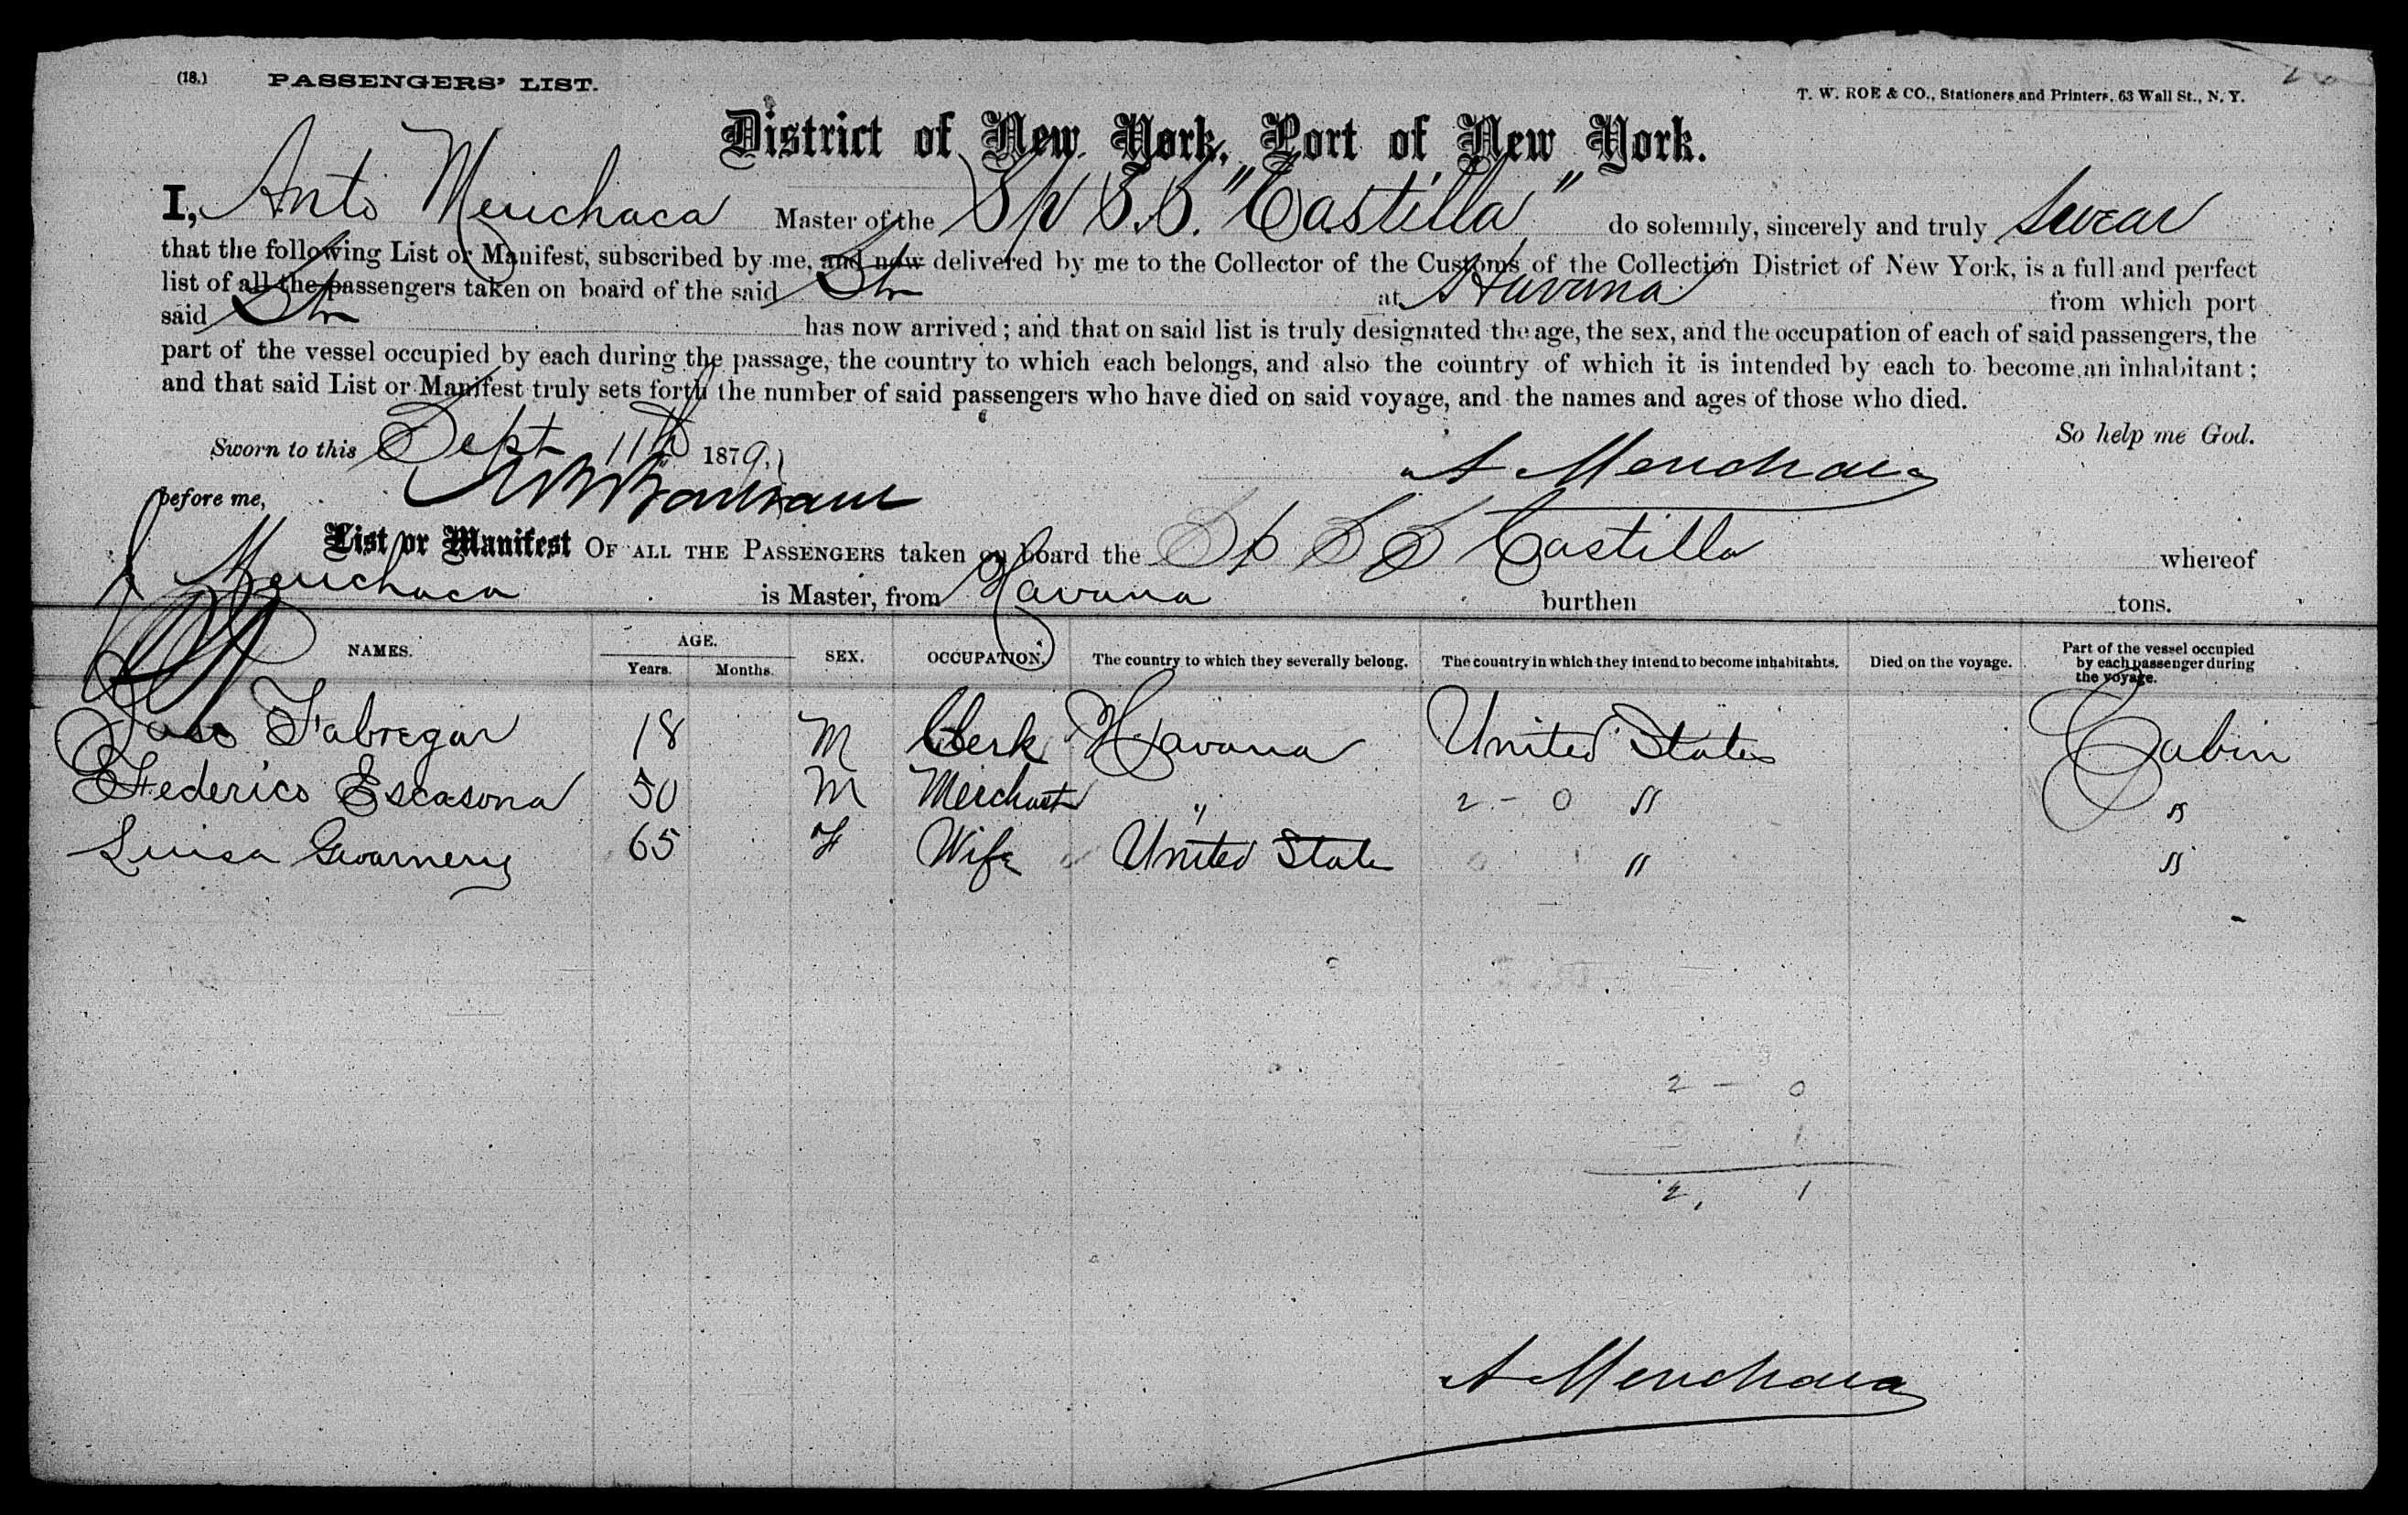 (18.) PASSENGERS' LIST.
T. W. ROE & CO., Stationers and Printers, 63 Wall St., N. Y.
District of New York, Port of New York.
I, Anto Menchaca Master of the Sp S.S. "Castilla" do solemnly, sincerely and truly Swear
that the following List or Manifest, subscribed by me, and now delivered by me to the Collector of the Customs of the Collection District of New York, is a full and perfect
list of all the passengers taken on board of the said Str at Havana from which port
said Str has now arrived; and that on said list is truly designated the age, the sex, and the occupation of each of said passengers, the
part of the vessel occupied by each during the passage, the country to which each belongs, and also the country of which it is intended by each to become an inhabitant;
and that said List or Manifest truly sets forth the number of said passengers who have died on said voyage, and the names and ages of those who died.
So help me God.
Sworn to this Sept 11th 1879.
A Menchaca
before me,
List or Manifest OF ALL THE PASSENGERS taken on board the Sp SS Castilla whereof
Menchaca is Master, from Havana burthen tons.
NAMES. AGE. Years. Months. SEX. OCCUPATION. The country to which they severally belong. The country in which they intend to become inhabitants. Died on the voyage. Part of the vessel occupied by each passenger during the voyage.
Fabregar 18 M Clerk Havana United States Cabin
Federico Escasona 50 M Merchant " 2 - 0 " "
Luisa 65 F Wife United State " "
2 - 0
1
2, 1
A Menchaca